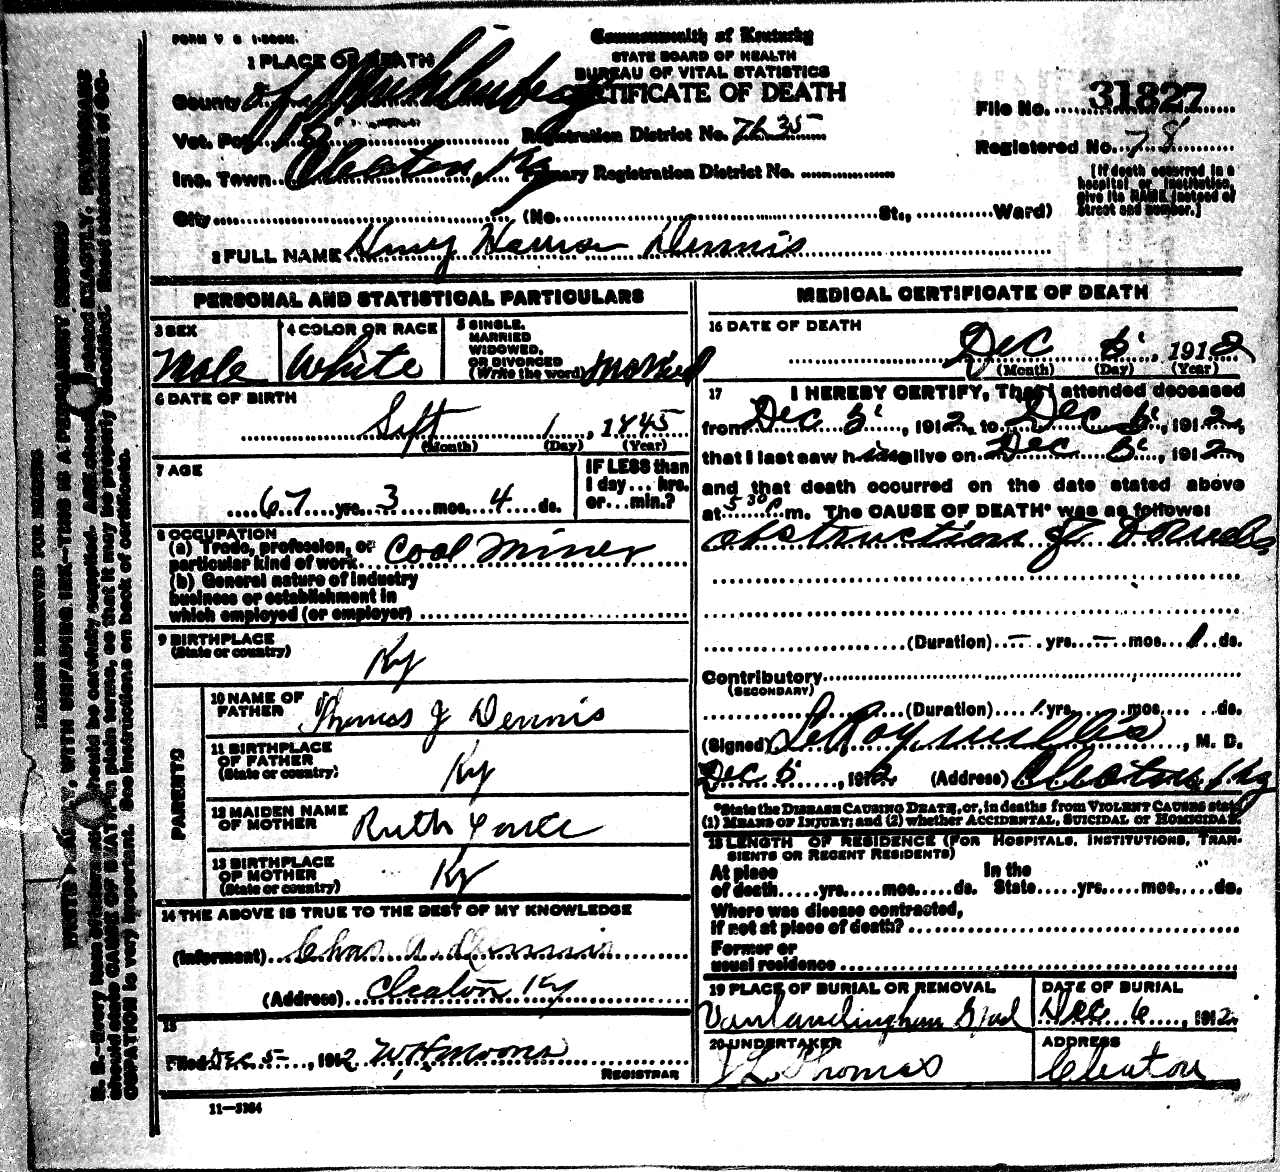 FORM V S 1-500M.
Commonwealth of Kentucky
STATE BOARD OF HEALTH
BUREAU OF VITAL STATISTICS
CERTIFICATE OF DEATH
1 PLACE OF DEATH
County of Muhlenberg
Vot. Pct. 15
Inc. Town Cleaton, Ky
City (No. St., Ward)
Registration District No. 7235
Primary Registration District No.
File No. 31827
Registered No. 78
[If death occurred in a hospital or institution, give its NAME instead of street and number.]
2 FULL NAME Dennis
PERSONAL AND STATISTICAL PARTICULARS
3 SEX Male
4 COLOR OR RACE White
5 SINGLE, MARRIED WIDOWED, OR DIVORCED (Write the word) Married
6 DATE OF BIRTH
Sept 1, 1845
(Month) (Day) (Year)
7 AGE
67 yrs. 3 mos. 4 ds.
IF LESS than 1 day... hrs. or... min.?
8 OCCUPATION
(a) Trade, profession, or particular kind of work Coal Miner
(b) General nature of industry
business or establishment in
which employed (or employer)
9 BIRTHPLACE
(State or country) Ky
PARENTS
10 NAME OF FATHER Thomas J Dennis
11 BIRTHPLACE OF FATHER (State or country) Ky
12 MAIDEN NAME OF MOTHER Ruth
13 BIRTHPLACE OF MOTHER (State or country) Ky
14 THE ABOVE IS TRUE TO THE BEST OF MY KNOWLEDGE
(Informant) Chas A. Dennis
(Address) Cleaton Ky
15
Filed Dec 5-, 1912 W.H. Moore
REGISTRAR
11-3184
MEDICAL CERTIFICATE OF DEATH
16 DATE OF DEATH
Dec 5, 1912
(Month) (Day) (Year)
17 I HEREBY CERTIFY, That I attended deceased
from Dec 5, 1912, to Dec 5, 1912,
that I last saw him alive on Dec 5, 1912,
and that death occurred on the date stated above
at 530P m. The CAUSE OF DEATH* was as follows:
obstruction of Bowels
(Duration) - yrs. - mos. 1 ds.
Contributory
(SECONDARY)
(Duration) yrs. mos. ds.
(Signed) LeRoy Willis, M. D.
Dec 5, 1912 (Address) Cleaton, Ky
*State the DISEASE CAUSING DEATH, or, in deaths from VIOLENT CAUSES state
(1) MEANS OF INJURY; and (2) whether ACCIDENTAL, SUICIDAL OR HOMICIDAL.
18 LENGTH OF RESIDENCE (FOR HOSPITALS, INSTITUTIONS, TRANSIENTS OR RECENT RESIDENTS)
At place of death yrs. mos. ds. In the State yrs. mos. ds.
Where was disease contracted,
if not at place of death?
Former or
usual residence
19 PLACE OF BURIAL OR REMOVAL
Vanlandingham
DATE OF BURIAL
Dec 6, 1912
20 UNDERTAKER
J L Thomas
ADDRESS
Cleaton
MARGIN RESERVED FOR BINDING
WRITE PLAINLY, WITH UNFADING INK—THIS IS A PERMANENT RECORD
N. B.—Every item of information should be carefully supplied. AGE should be stated EXACTLY. PHYSICIANS
should state CAUSE OF DEATH in plain terms, so that it may be properly classified. Exact statement of OC-
CUPATION is very important. See instructions on back of certificate.